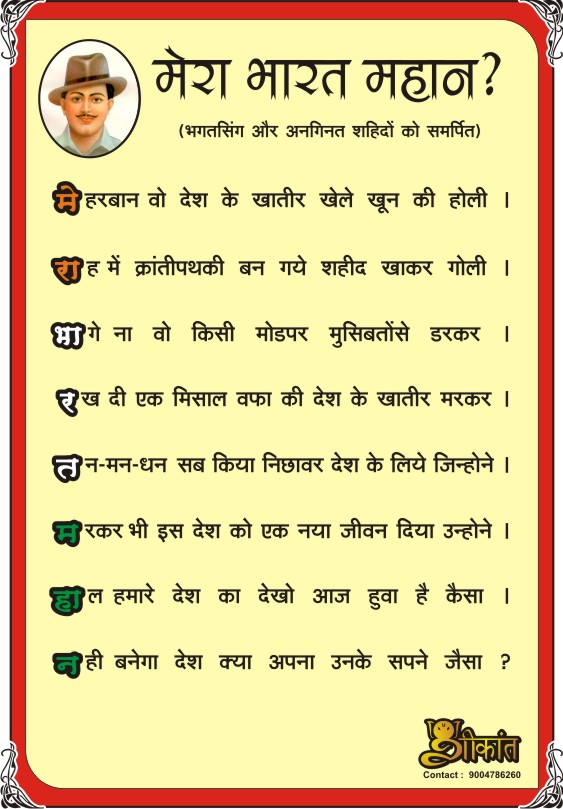 मेरा भारत महान?
(भगतसिंग और अनगिनत शहिदों को समर्पित)
मेहरबान वो देश के खातीर खेले खून की होली ।
राह में क्रांतीपथकी बन गये शहीद खाकर गोली ।
भागे ना वो किसी मोडपर मुसिबतोंसे डरकर ।
रख दी एक मिसाल वफा की देश के खातीर मरकर ।
तन-मन-धन सब किया निछावर देश के लिये जिन्होने ।
मरकर भी इस देश को एक नया जीवन दिया उन्होने ।
हाल हमारे देश का देखो आज हुवा है कैसा ।
नही बनेगा देश क्या अपना उनके सपने जैसा ?
श्रीकांत
Contact : 9004786260